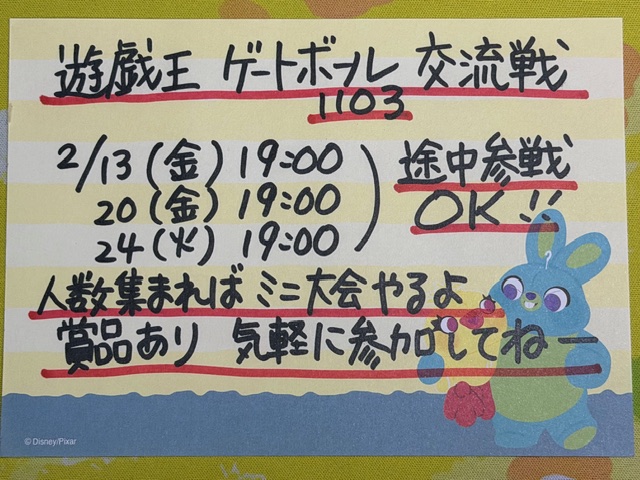 遊戯王 ゲートボール 交流戦
1103
2/13(金) 19:00
20(金) 19:00
24(火) 19:00
途中参戦
OK!!
人数集まれば ミニ大会やるよ
賞品あり 気軽に参加してねー
© Disney/Pixar